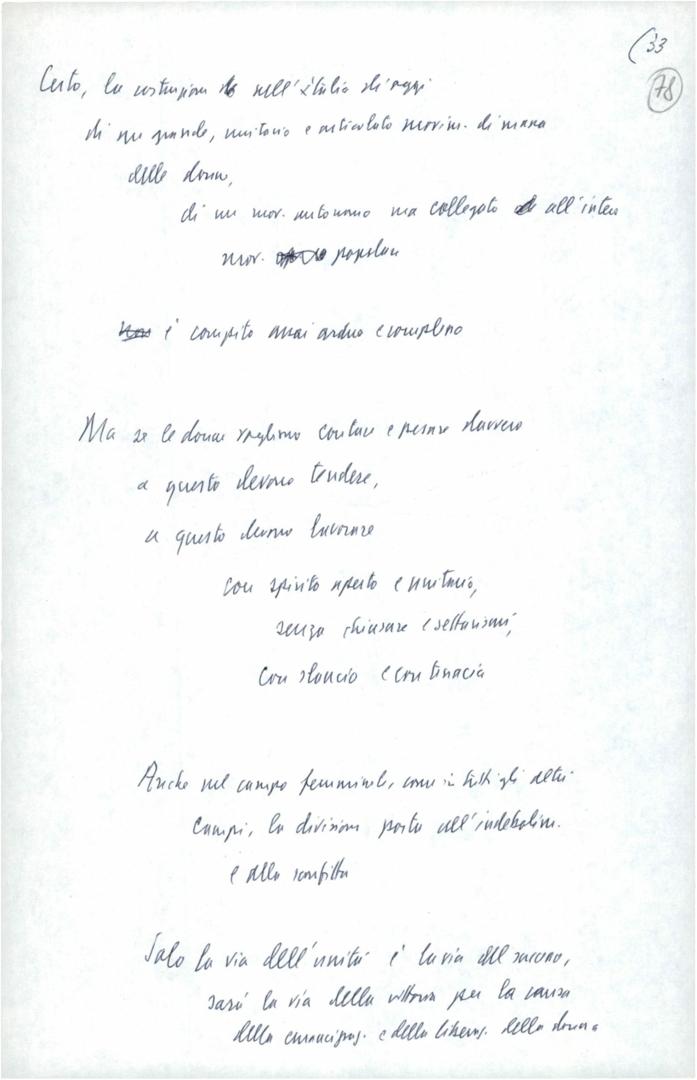 (33
78
Certo, la costruzione nell'Italia di oggi
di un grande, unitario e articolato movim. di massa
delle donne,
di un mov. autonomo ma collegato all'intero
mov. popolare
è compito assai arduo e complesso
Ma se le donne vogliono contare e pesare davvero
a questo devono tendere,
a questo devono lavorare
con spirito aperto e unitario,
senza chiusure e settarismi,
con slancio e con tenacia
Anche nel campo femminile, come in tutti gli altri
campi, la divisione porta all'indebolim.
e alla sconfitta
Solo la via dell'unità è la via del successo,
sarà la via della vittoria per la causa
della emancipaz. e della liberaz. della donna